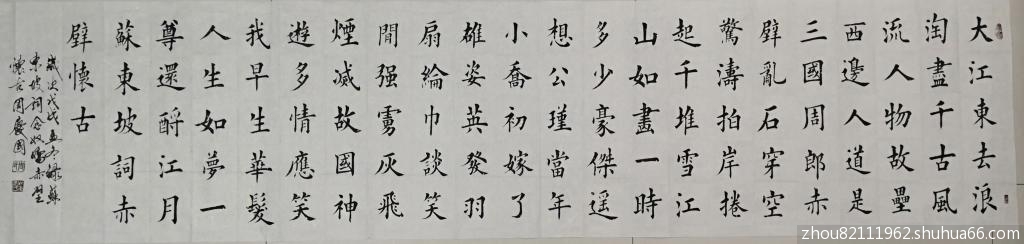 大江東去浪
淘盡千古風
流人物故壘
西邊人道是
三國周郎赤
壁亂石穿空
驚濤拍岸捲
起千堆雪江
山如畫一時
多少豪傑遥
想公瑾當年
小喬初嫁了
雄姿英發羽
扇綸巾談笑
間强虜灰飛
煙滅故國神
遊多情應笑
我早生華髮
人生如夢一
尊還酹江月
蘇東坡詞赤
壁懷古
歲次戊戌孟冬錄蘇
東坡詞念奴嬌赤壁
懷古周慶國
zhou82111962.shuhua66.com